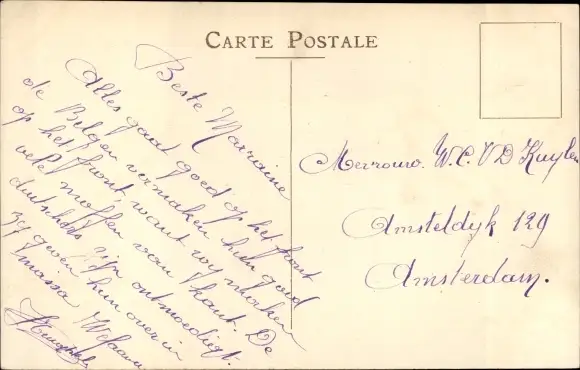 CARTE POSTALE
Beste Marraine
Alles gaat goed op het front
de Belgen vermaken hun goed
op het front, want wij maken
vele moffen van kant. De
duitschers zijn ontmoedigt.
zij geven hun over in
massa
Merrouw. W. C. V D Kuylen
Amsteldyk 129
Amsterdam.